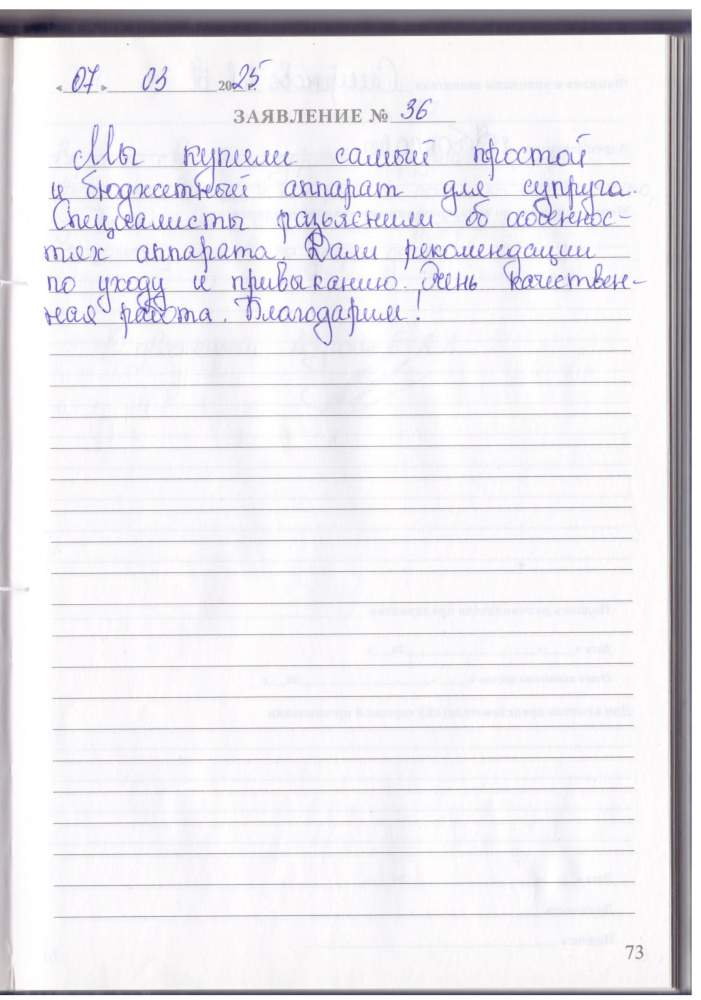 « 07 » 03 2025 г.
ЗАЯВЛЕНИЕ № 36
Мы купили самый простой
и бюджетный аппарат для супруга.
Специалисты разъяснили об особеннос-
тях аппарата. Дали рекомендации
по уходу и привыканию. Очень качествен-
ная работа. Благодарим!
73